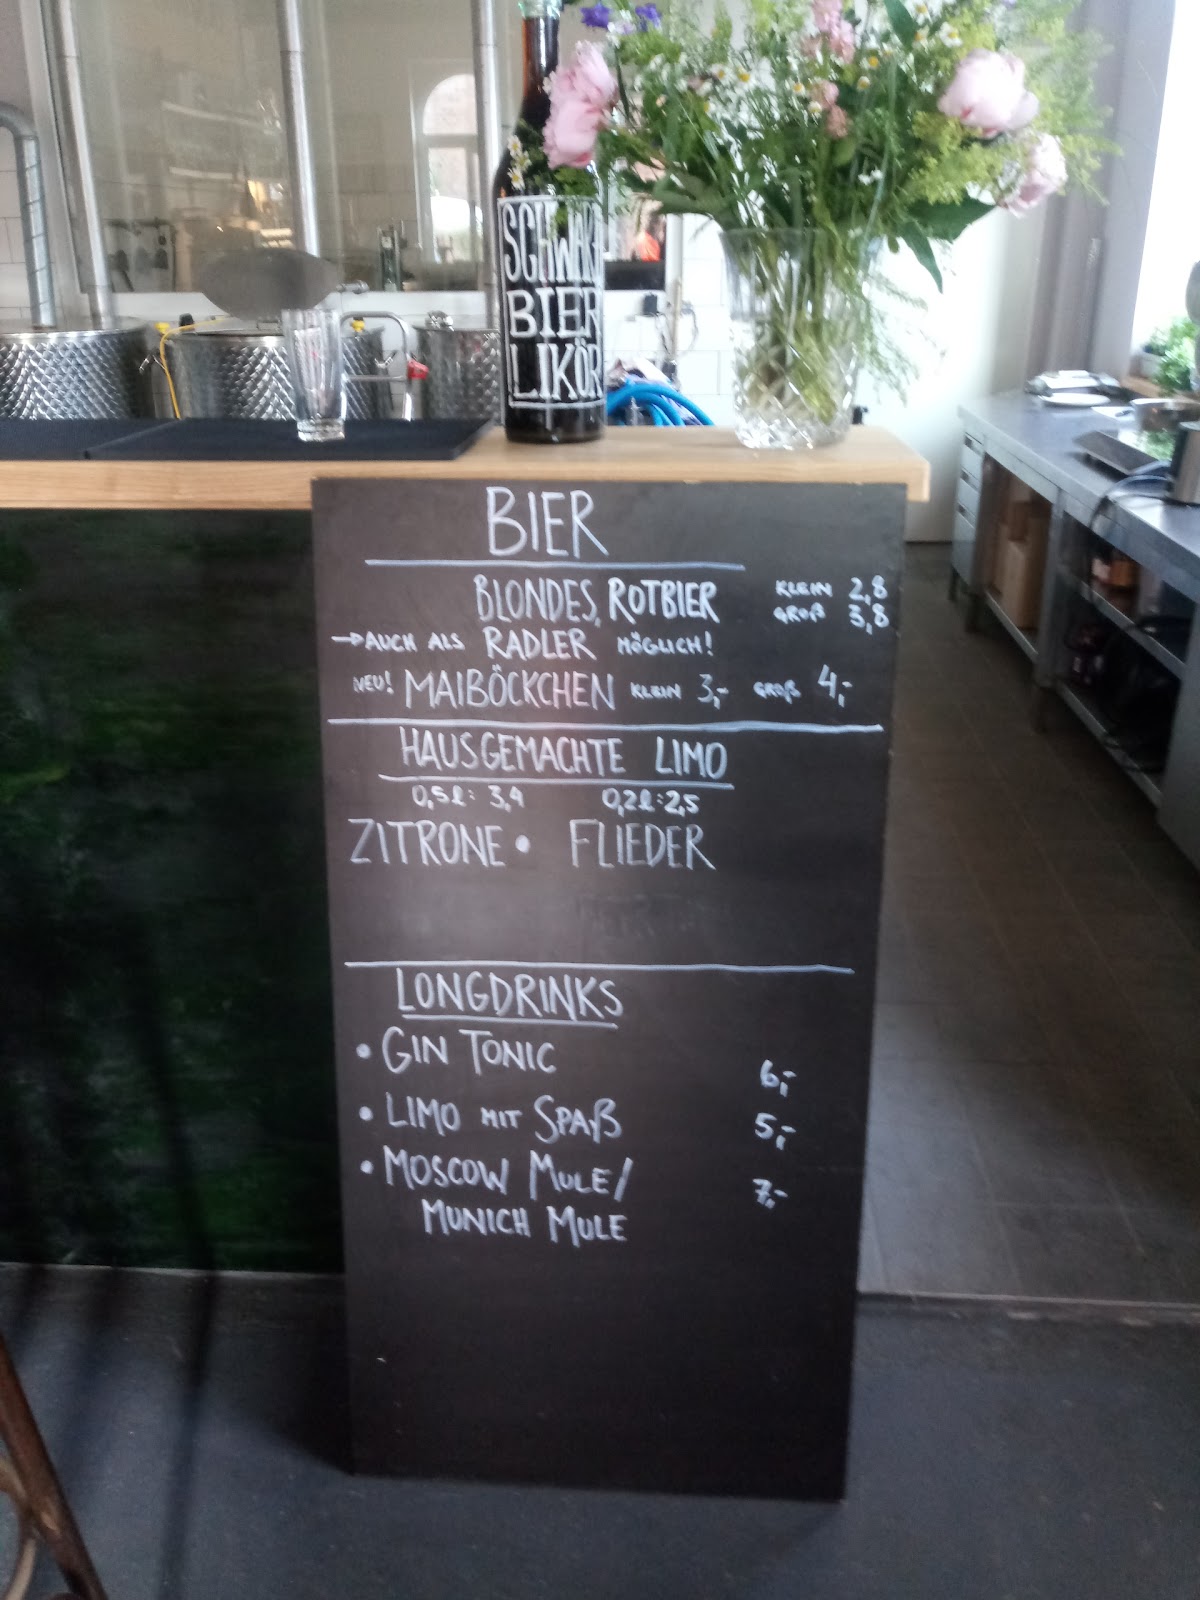 SCHWARZ
BIER
LIKÖR
BIER
BLONDES, ROTBIER KLEIN 2,8
GROß 3,8
→ AUCH ALS RADLER MÖGLICH!
NEU! MAIBÖCKCHEN KLEIN 3,- GROß 4,-
HAUSGEMACHTE LIMO
0,5l: 3,4 0,2l: 2,5
ZITRONE • FLIEDER
LONGDRINKS
• GIN TONIC 6,-
• LIMO MIT SPAß 5,-
• MOSCOW MULE/ 7,-
MUNICH MULE